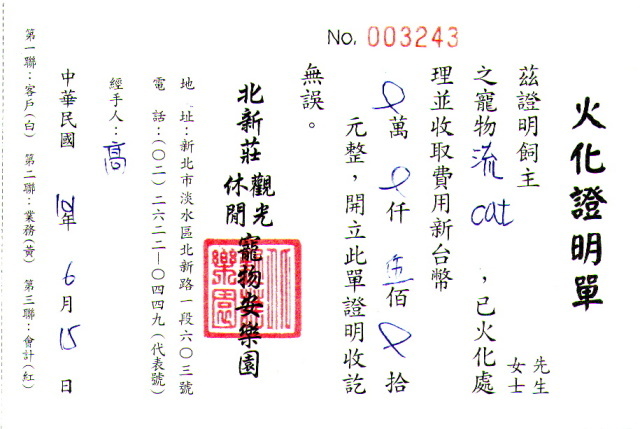 No. 003243
火化證明單
茲證明飼主 先生 女士
之寵物流 cat ,已火化處
理並收取費用新台幣
萬 仟 伍佰 拾
元整,開立此單證明收訖
無誤。
北新莊觀光休閒寵物安樂園
地 址:新北市淡水區北新路一段六〇三號
電 話:(〇二)二六二二—〇四四九(代表號)
經手人:高
中華民國 年 6 月 15 日
第一聯:客戶(白) 第二聯:業務(黃) 第三聯:會計(紅)